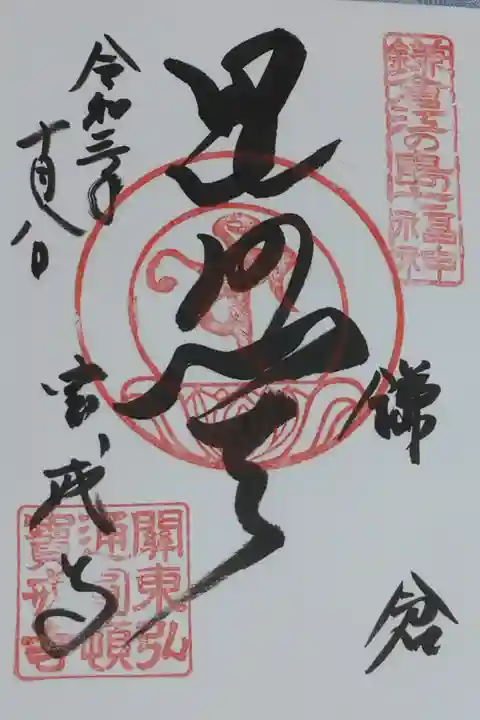 鎌倉江の島七福神
鎌倉
毘沙門天
令和三年
十月八日
宝戒寺
關東弘
通圓頓
寶戒寺